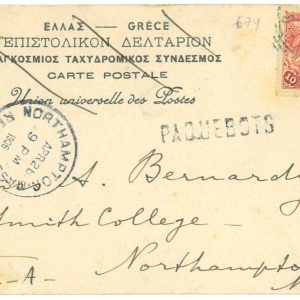 ΕΛΛΑΣ — GRÈCE
674
ΕΠΙΣΤΟΛΙΚΟΝ ΔΕΛΤΑΡΙΟΝ
ΑΓΚΟΣΜΙΟΣ ΤΑΧΥΔΡΟΜΙΚΟΣ ΣΥΝΔΕΣΜΟΣ
CARTE POSTALE
Union universelle des Postes
10
PAQUEBOTS
NORTHAMPTON
APR 26
9 PM
1906
A. Bernardy
Smith College -
Northampton
A-